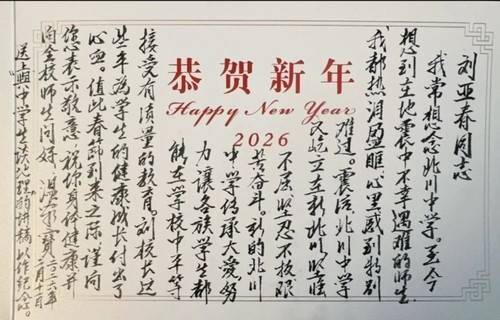 恭贺新年
Happy New Year
2026
刘亚春同志
我常想念北川中学。至今
想到在地震中不幸遇难的师生
我都热泪盈眶,心里感到特别
难过。震后北川中学
又屹立在新北川,坚强
不屈坚忍不拔艰
苦奋斗。新的北川
中学传承大爱努
力让各族学生都
能在学校中平等
接受有质量的教育。刘校长这
些年为学生的健康成长付出了
心血。值此春节到来之际,谨向
你表示敬意,祝你身体健康并
向全校师生问好。温家宝 二〇二六年
二月十日
送上與中学生谈地理的讲稿,以作纪念。